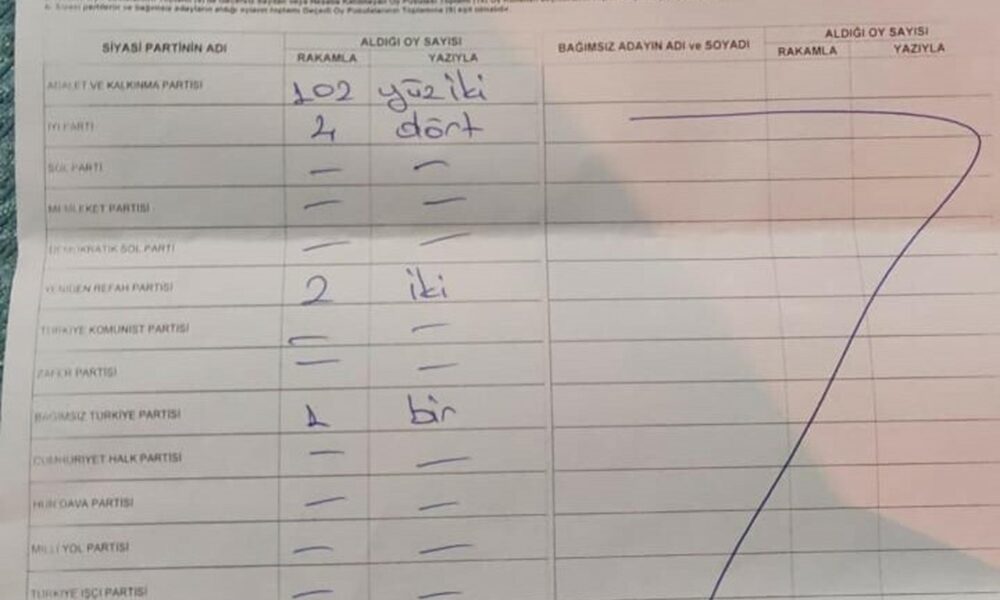 6. Siyasi partilerin ve bağımsız adayların aldığı oyların toplamı Geçerli Oy Pusulalarının Toplamına (9) eşit olmalıdır.
SİYASİ PARTİNİN ADI
ALDIĞI OY SAYISI
RAKAMLA YAZIYLA
BAĞIMSIZ ADAYIN ADI ve SOYADI
ALDIĞI OY SAYISI
RAKAMLA YAZIYLA
ADALET VE KALKINMA PARTİSİ 102 yüz iki
İYİ PARTİ 4 dört
SOL PARTİ — —
MEMLEKET PARTİSİ — —
DEMOKRATİK SOL PARTİ — —
YENİDEN REFAH PARTİSİ 2 iki
TÜRKİYE KOMÜNİST PARTİSİ — —
ZAFER PARTİSİ — —
BAĞIMSIZ TÜRKİYE PARTİSİ 1 bir
CUMHURİYET HALK PARTİSİ — —
HÜR DAVA PARTİSİ — —
MİLLİ YOL PARTİSİ — —
TÜRKİYE İŞÇİ PARTİSİ — —